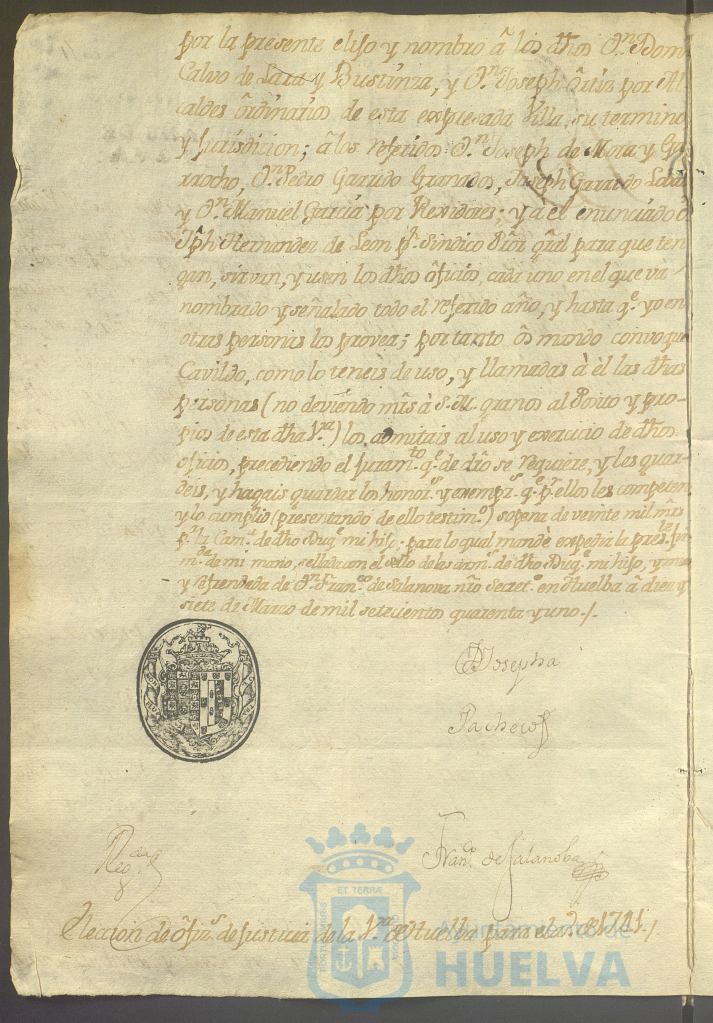 por la presente elijo y nombro â los dhos Dn. Dom
Calvo de Lara y Bustinza, y Dn. Joseph Ortiz por Al
caldes ôrdinarios de esta expresada Villa, su termino
y Jurisdicion; â los referidos Dn. Joseph de Mora y Ga
rrocho, Dn. Pedro Garrido Granados, Joseph Garrido
y Dn. Manuel Garcia por Rexidores; y a el enunciado
Jph. Hernandez de Leon pr. Sindico Pror. gral para que ten
gan, sirvan, y usen los dhos ôficios, cada uno en el que va
nombrado y señalado todo el referido año, y hasta qe. yo en
otras personas los provea; por tanto ôs mando convoqueis
Cavildo, como lo teneis de uso, y llamadas à èl las dhas
personas (no deviendo mrs à S. M. granos al Posito y pro
pios de esta dha Va.) los admitais al uso y exercicio de dhos
oficios, precediendo el Juramto. qe. de dro se requiere, y les guar
deis, y hagais guardar los honors. y exempcs. qe. pr. ellos les competen
y lo cumplid (presentando de ello testimo.) sopena de veinte mil mrs
pa. la Cama. de dho Duqe. mi hijo: para lo qual mandè expedir la preste. fir
mda. de mi mano, sellada con el sello de las armas. de dho Duqe. mi hijo, y
y refrendada de Dn. Franco. de Salanova nro Secreto. en Huelba â diez y
siete de Marzo de mil setecientos quarenta y uno./.
Josepha
Pacheco
Regda.
Franco. de Salanoba
Eleccion de ôficis. de Justicia de la Va. de Huelba para el año de 1741./.
ET TERRAE
Ayuntamiento de
HUELVA